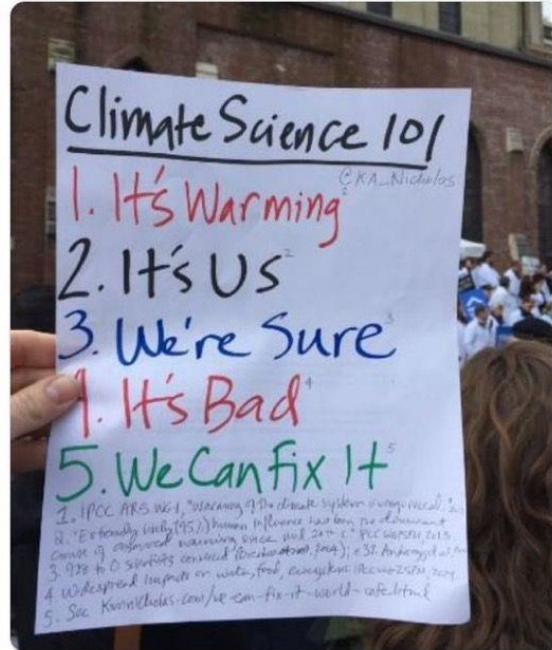 Climate Science 101
@KA_Nicholas
1. It's Warming 1
2. It's Us 2
3. We're Sure 3
4. It's Bad 4
5. We Can Fix It 5
1. IPCC AR5 WG1, "Warming of the climate system is unequivocal."
2. "Extremely likely (95%) human influence has been the dominant
cause of observed warming since mid 20th c." IPCC 2013
3. 928 to 0 scientists 2004);
4. Widespread impacts on water, food, ecosystems IPCC
5. See KimNicholas.com/we-can-fix-it-world-cafe.html